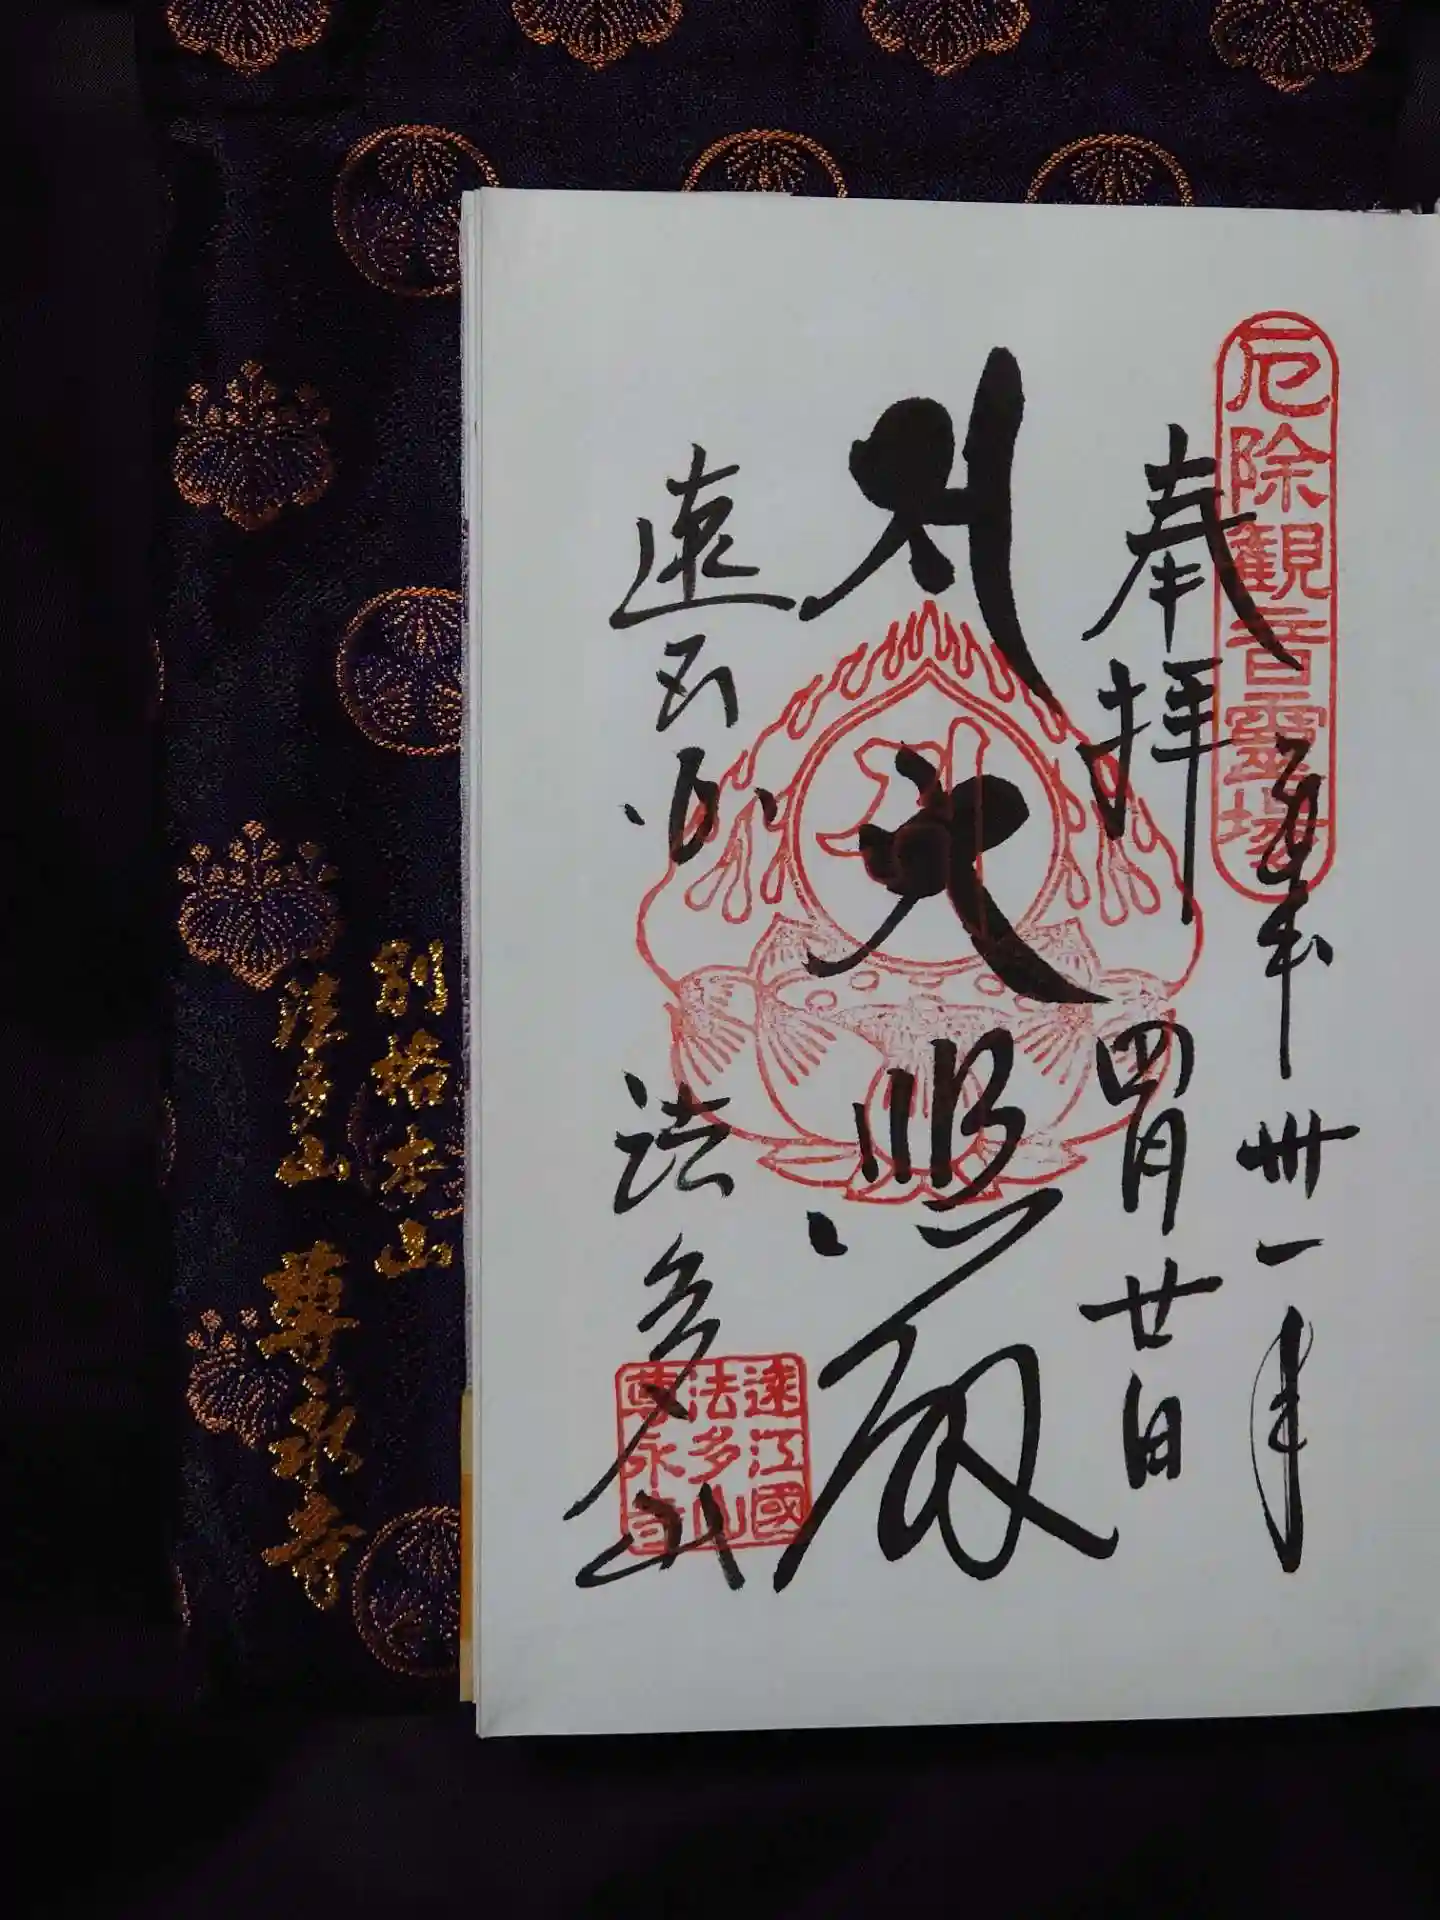 厄除観音霊場
奉拝
平成卅一年
四月廿日
大悲殿
遠州
法多山
遠江國
法多山
尊永寺
別格本山
法多山 尊永寺